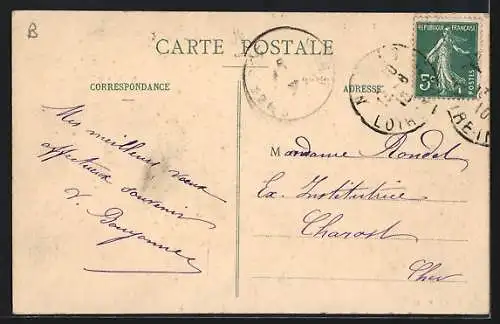 B
CARTE POSTALE
CORRESPONDANCE
ADRESSE
REPUBLIQUE FRANÇAISE
5c
POSTES
LOIR
Mes meilleurs vœux
affectueux souvenir
Madame Rondet
Ex. Institutrice
Charost
Cher